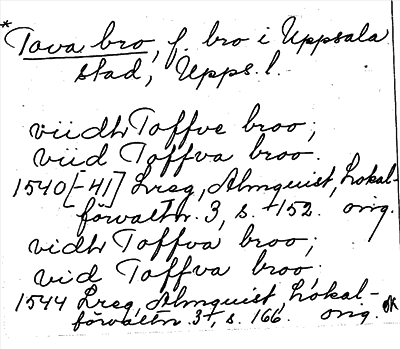 *Tava bro, f. bro i Uppsala
stad, Upps. l.
viidh Toffve broo;
viid Toffva broo.
1540[-41] Lreg, Almquist, Lokal-
förvaltn. 3, s. +152. orig.
vidh Toffva broo;
vid Toffva broo.
1544 Lreg, Almquist, Lokal-
förvaltn. 3+, s. 166. orig.